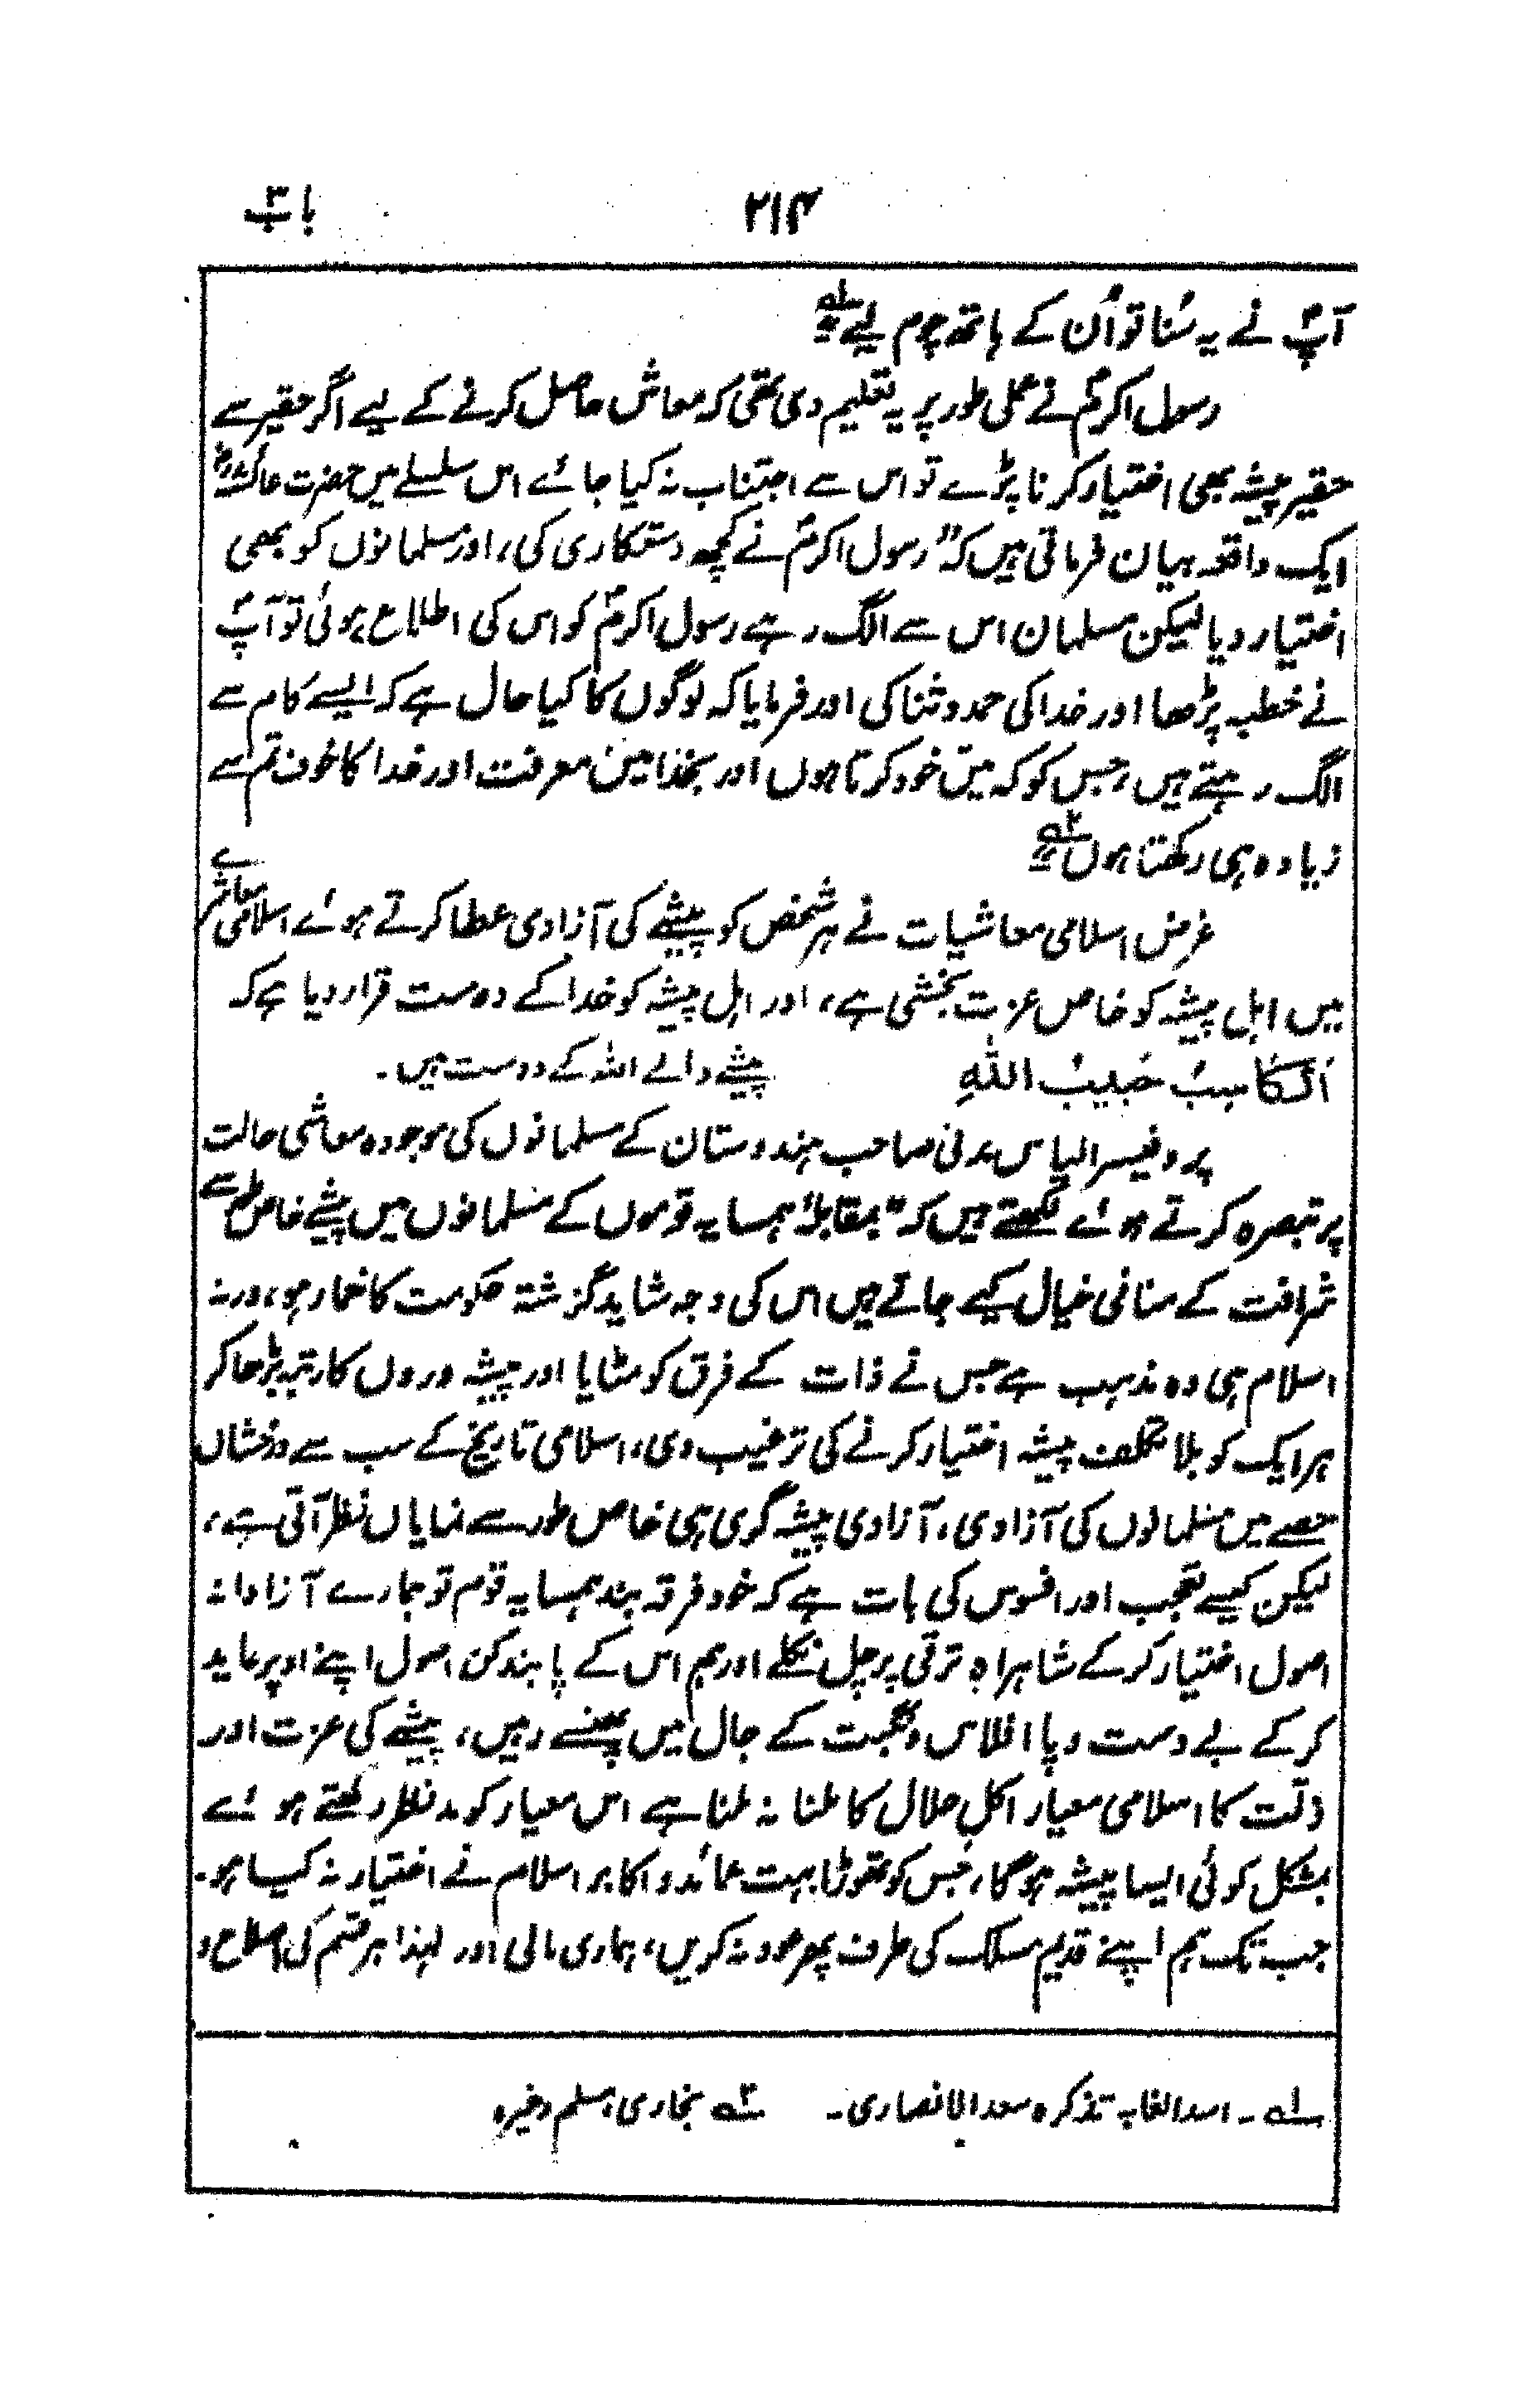 باب ۳
۲۱۴
آپؐ نے یہ سُنا تو اُن کے ہاتھ چوم لیے ۱؎
رسول اکرمؐ نے عملی طور پر یہ تعلیم دی تھی کہ معاش حاصل کرنے کے لیے اگر حقیر سے
حقیر پیشہ بھی اختیار کرنا پڑے تو اس سے اجتناب نہ کیا جائے اس سلسلے میں حضرت عائشہؓ
ایک واقعہ بیان فرماتی ہیں کہ "رسول اکرمؐ نے کچھ دستکاری کی، اور مسلمانوں کو بھی
اختیار دیا لیکن مسلمان اس سے الگ رہے رسول اکرمؐ کو اس کی اطلاع ہوئی تو آپؐ
نے خطبہ پڑھا اور خدا کی حمد و ثنا کی اور فرمایا کہ لوگوں کا کیا حال ہے کہ ایسے کام سے
الگ رہتے ہیں، جس کو کہ میں خود کرتا ہوں اور بخدا میں معرفت اور خدا کا خوف تم سے
زیادہ ہی رکھتا ہوں ۲؎"
غرض اسلامی معاشیات نے ہر شخص کو پیشے کی آزادی عطا کرتے ہوئے اسلامی معاشرے
میں اہل پیشہ کو خاص عزت بخشی ہے، اور اہل پیشہ کو خدا کے دوست قرار دیا ہے کہ
اَلْکَاسِبُ حَبِیْبُ اللّٰہِ پیشے والے اللہ کے دوست ہیں۔
پروفیسر الیاس برنی صاحب ہندوستان کے مسلمانوں کی موجودہ معاشی حالت
پر تبصرہ کرتے ہوئے لکھتے ہیں کہ "بمقابلہ ہمسایہ قوموں کے مسلمانوں میں پیشے خاص طور سے
شرافت کے منافی خیال کیے جاتے ہیں اس کی وجہ شاید گزشتہ حکومت کا خمار ہو، ورنہ
اسلام ہی وہ مذہب ہے جس نے ذات کے فرق کو مٹایا اور پیشہ وروں کا رتبہ بڑھا کر
ہر ایک کو بلا تکلف پیشہ اختیار کرنے کی ترغیب دی، اسلامی تاریخ کے سب سے درخشاں
حصے میں مسلمانوں کی آزادی، آزادی پیشہ گری ہی خاص طور سے نمایاں نظر آتی ہے،
لیکن کیسے تعجب اور افسوس کی بات ہے کہ خود فرقہ بند ہمسایہ قوم تو ہمارے آزادانہ
اصول اختیار کر کے شاہراہِ ترقی پر چل نکلے اور ہم اس کے پابند کن اصول اپنے اوپر عاید
کر کے بے دست و پا افلاس و نکبت کے جال میں پھنسے رہیں، پیشے کی عزت اور
ذلّت کا اسلامی معیار اکلِ حلال کا ملنا نہ ملنا ہے اس معیار کو مدنظر رکھتے ہوئے
بمشکل کوئی ایسا پیشہ ہوگا، جس کو تھوڑا بہت عمائد و اکابر اسلام نے اختیار نہ کیا ہو۔
جب تک ہم اپنے قدیم مسلک کی طرف پھر عود نہ کریں، ہماری مالی اور لہذا ہر قسم کی اصلاح و
۱؎ ۔ اسد الغابہ تذکرہ سعد الانصاری۔ ۲؎ بخاری، مسلم وغیرہ